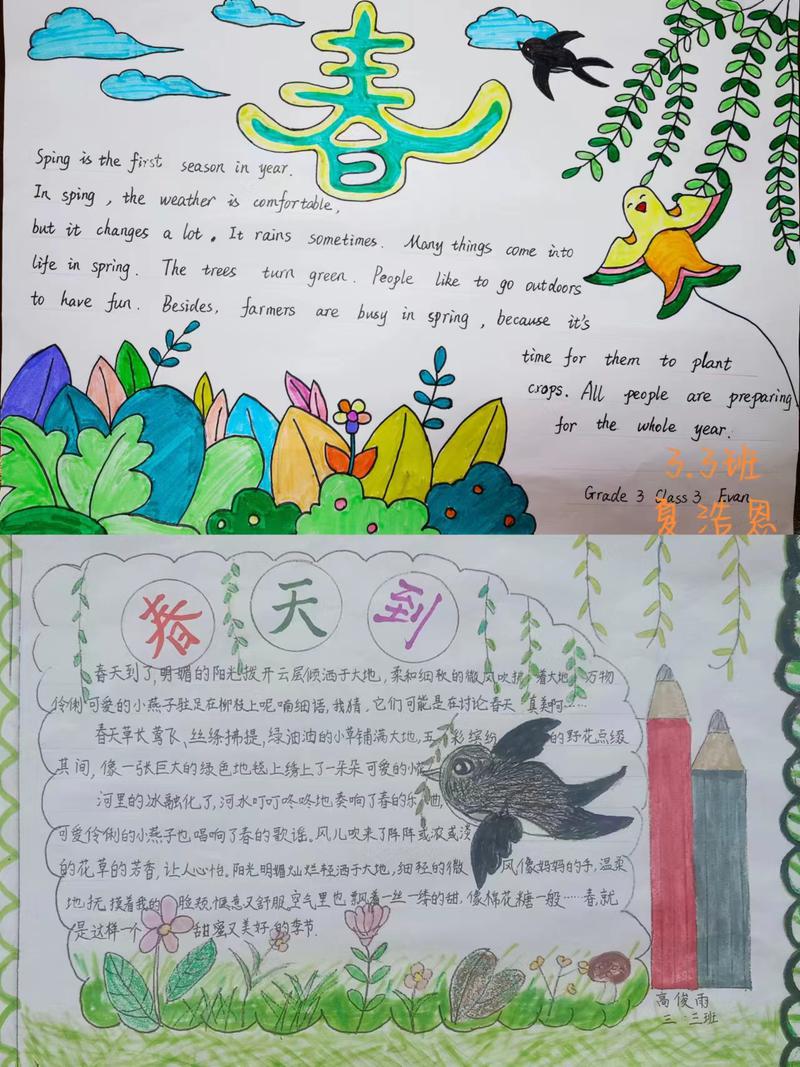 春
Sping is the first season in year.
In sping, the weather is comfortable,
but it changes a lot. It rains sometimes. Many things come into
life in spring. The trees turn green. People like to go outdoors
to have fun. Besides, farmers are busy in spring, because it's
time for them to plant
crops. All people are preparing
for the whole year.
3.3班
Grade 3 Class 3 Evan
夏浩恩
春天到
春天到了,明媚的阳光拨开云层倾洒于大地,柔和细软的微风吹拂着大地,万物
伶俐可爱的小燕子驻足在柳枝上呢喃细语,我猜,它们可能是在讨论春天真美啊……
春天草长莺飞、丝绦拂提,绿油油的小草铺满大地,五彩缤纷的野花点缀
其间,像一张巨大的绿色地毯上绣上了一朵朵可爱的小花
河里的冰融化了,河水叮叮咚咚地奏响了春的乐曲,
可爱伶俐的小燕子也唱响了春的歌谣。风儿吹来了阵阵或浓或淡
的花草的芳香,让人心怡。阳光明媚灿烂轻洒于大地,细轻的微风像妈妈的手,温柔
地抚摸着我的脸颊,惬意又舒服,空气里也飘着一丝一缕的甜,像棉花糖一般……春,就
是这样一个甜蜜又美好的季节.
高俊雨
三.三班